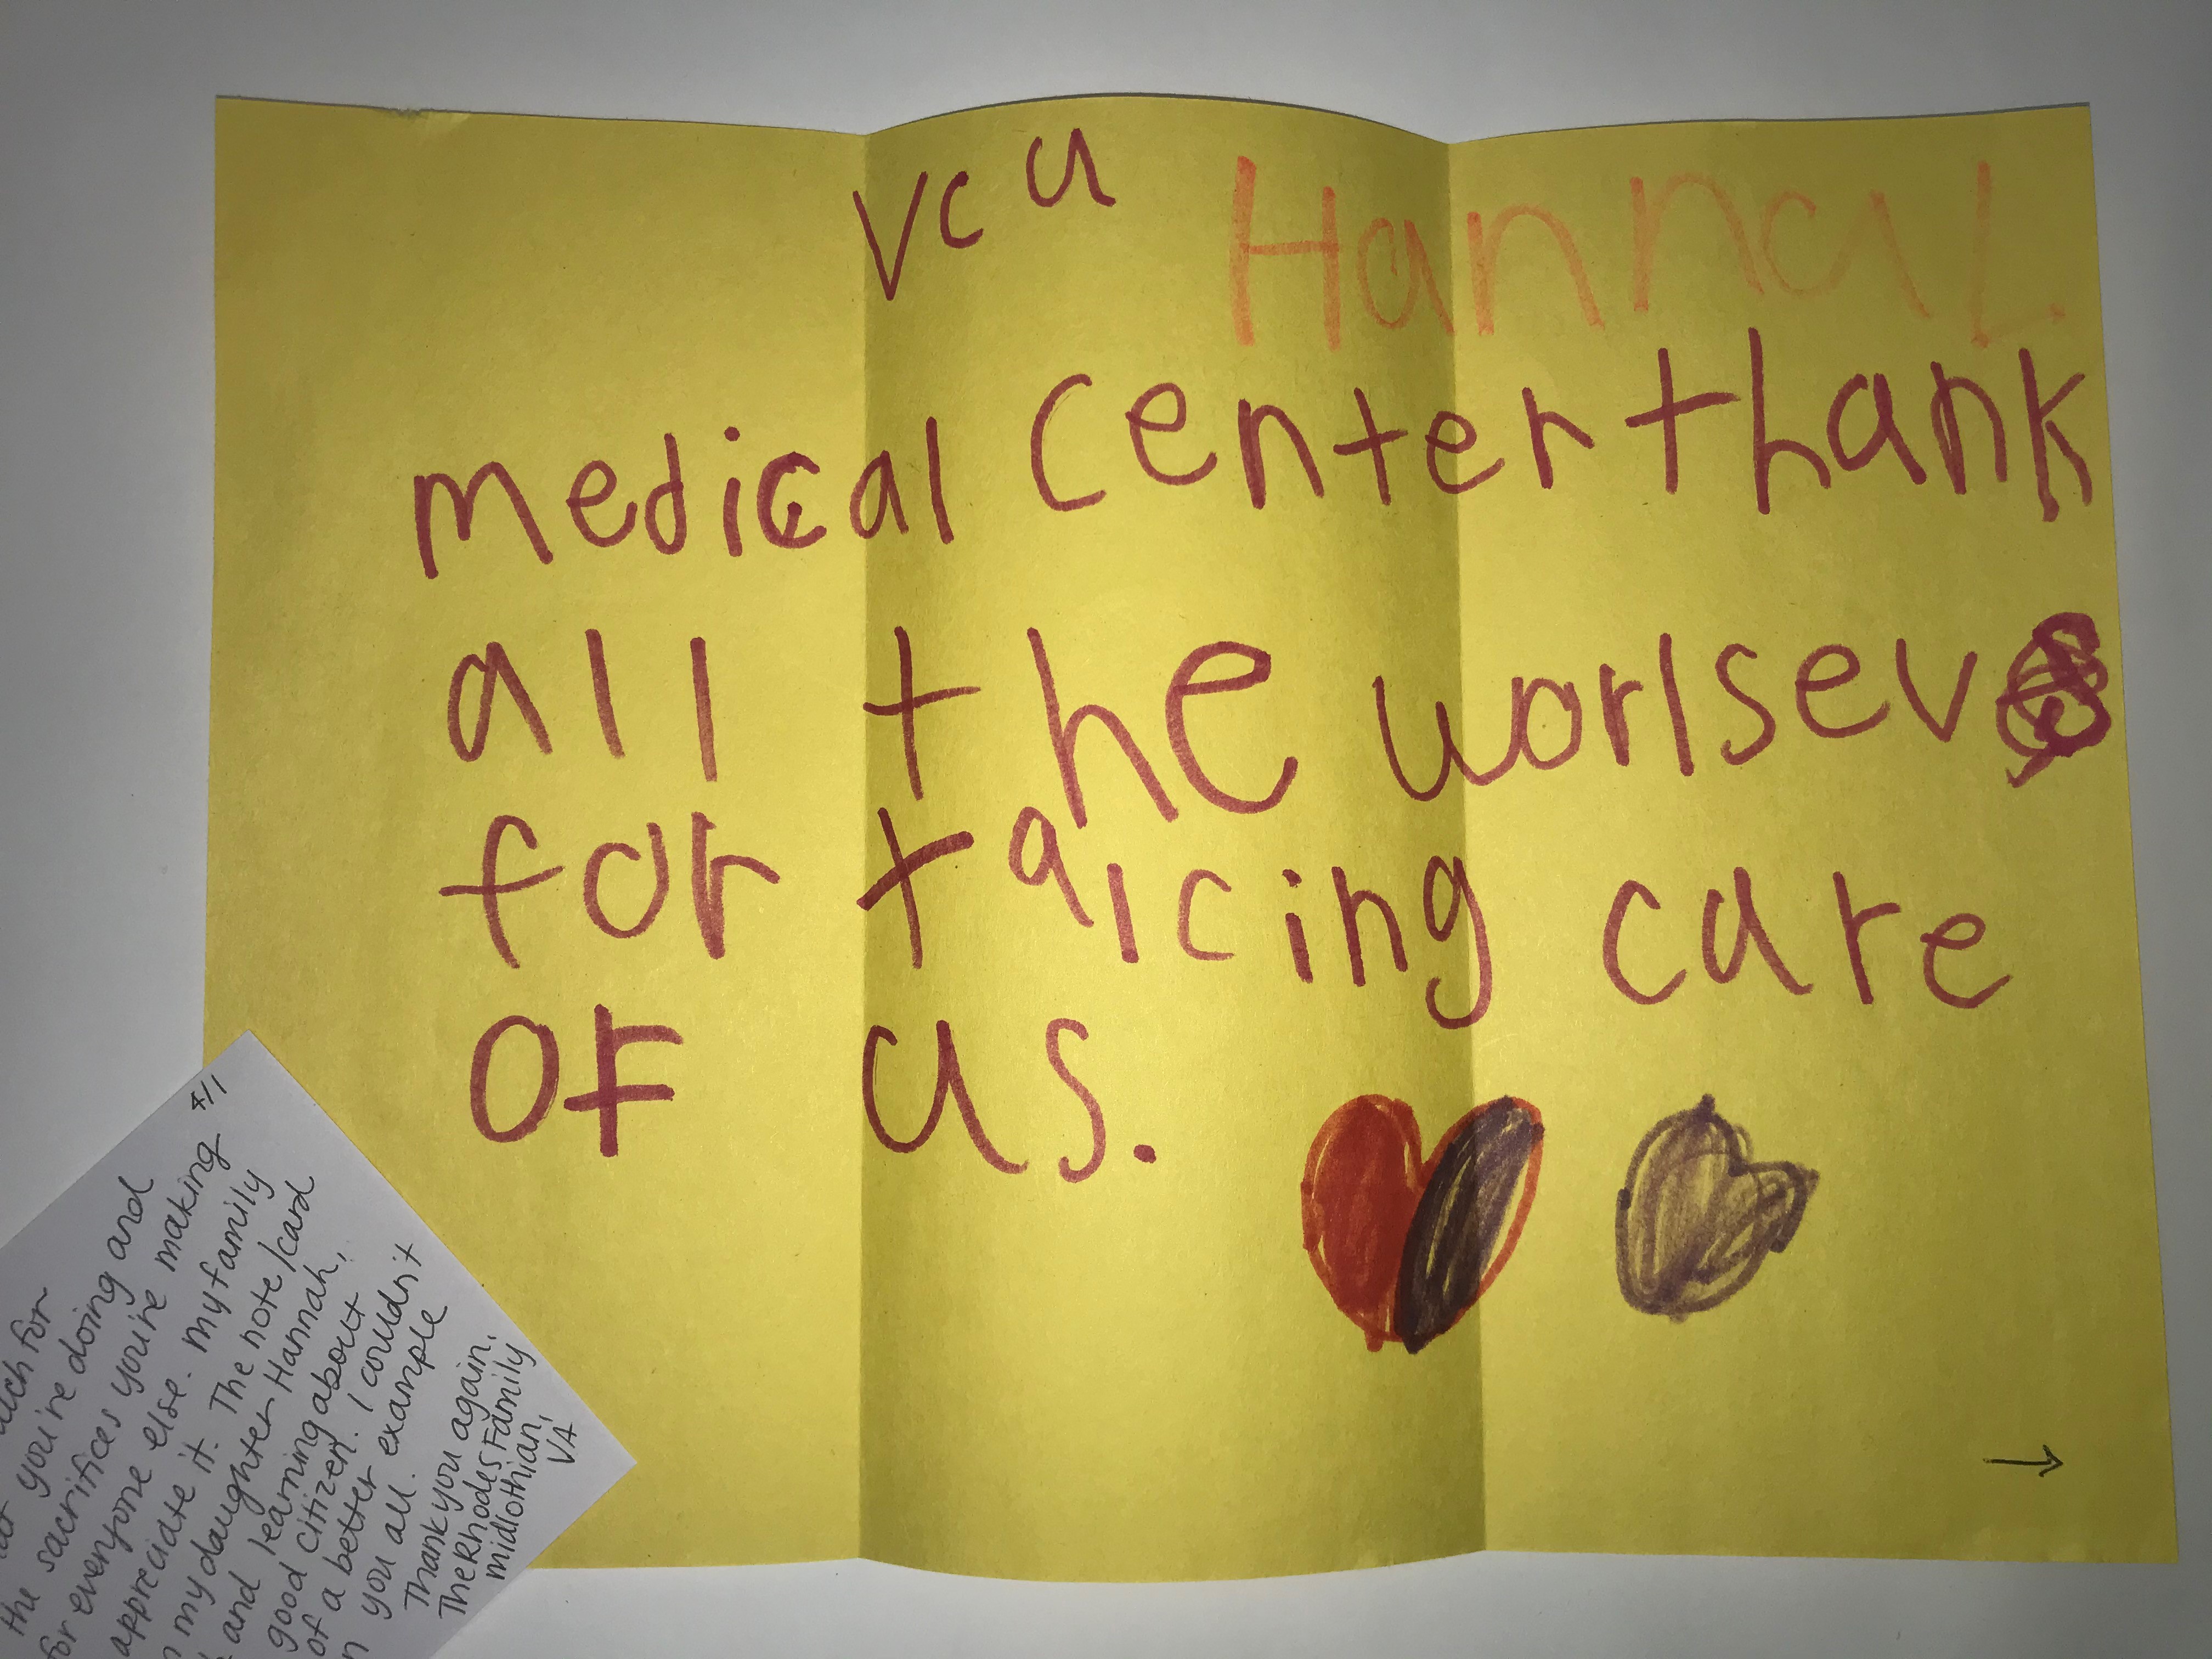 vcu Hanna L.
medical center thank
all the worlsev
for taicing care
of us.
4/1
for
you're doing and
the sacrifices you're making
for everyone else. My family
appreciate it. The note/card
my daughter Hannah,
and learning about
good citizen. I couldn't
of a better example
you all.
Thank you again,
The Rhodes Family
Midlothian,
VA